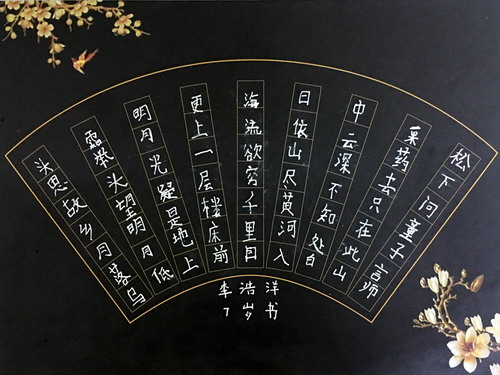 松下问童子言师
采药去只在此山
中云深不知处白
日依山尽黄河入
海流欲穷千里目
更上一层楼床前
明月光疑是地上
霜举头望明月低
头思故乡月落乌
李浩洋
7岁书